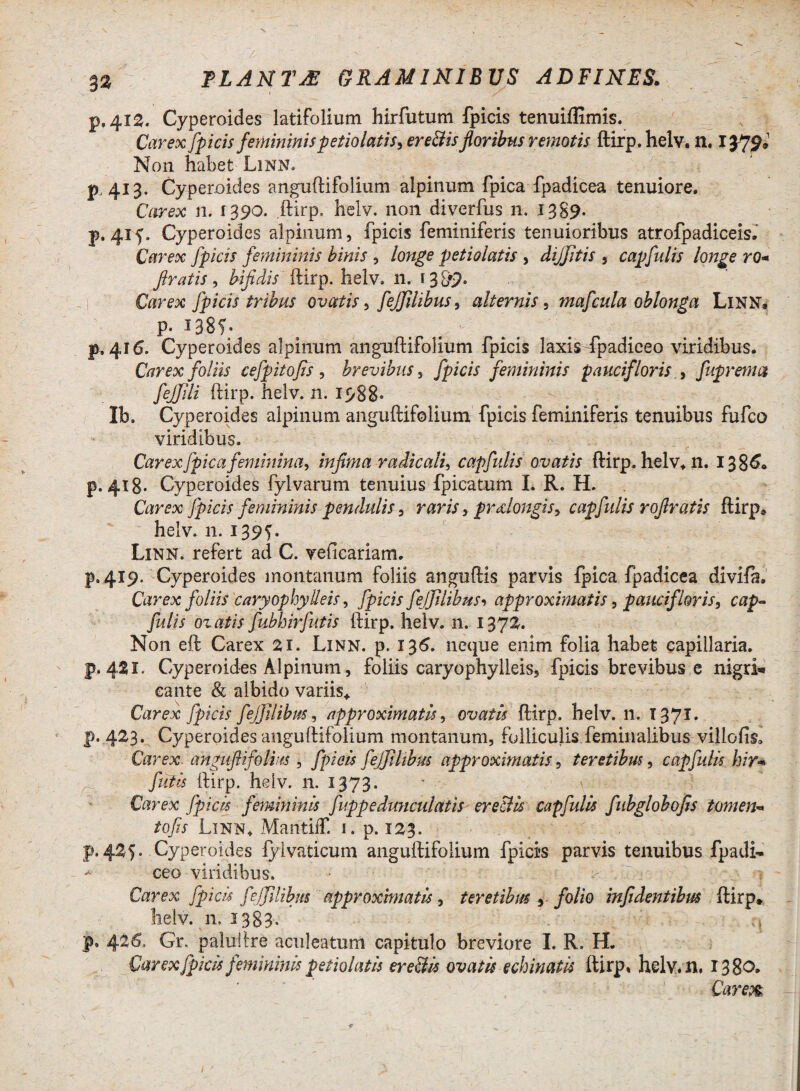 32 PLANTÆ GRAMINIBUS ADFINES.
p. 412. Cyperoides latifolium hirſutum ſpicis tenuiſſimis.
Carex ſpicis femininis petiolatis, erectis floribus remotis ſtirp. helv. n. 1379.
Non habet LINN.
p. 413. Cyperoides anguſtifolium alpinum ſpica ſpadicea tenuiore.
Carex n. 1390. ſtirp. helv. non diverſus n. 1389.
p. 415. Cyperoides alpinum, ſpicis feminiferis tenuioribus atroſpadiceis.
Carex ſpicis femininis binis, longe petiolatis, diſſitis, capſulis longe ro-
ſtratis, bifidis ſtirp. helv. n. 1389.
Carex ſpicis tribus ovatis, ſeſſilibus, alternis, maſcula oblonga LINN.
p. 1385.
p. 416. Cyperoides alpinum anguſtifolium ſpicis laxis ſpadiceo viridibus.
Carex foliis ceſpitoſis, brevibus, ſpicis femininis paucifloris, ſuprema
ſeſſili ſtirp. helv. n. 1388.
Ib. Cyperoides alpinum anguſtifolium ſpicis feminiferis tenuibus fuſco
viridibus.
Carex ſpica feminina, infima radicali, capſulis ovatis ſtirp. helv. n. 1386.
p. 418. Cyperoides ſylvarum tenuius ſpicatum I. R. H.
Carex ſpicis femininis pendulis, raris, prælongis, capſulis roſtratis ſtirp.
helv. n. 1395.
LINN. refert ad C. veſicariam.
p. 419. Cyperoides montanum foliis anguſtis parvis ſpica ſpadicea diviſa.
Carex foliis caryophylleis, ſpicis ſeſſilibus, approximatis, paucifloris, cap-
ſulis ovatis ſubhirſutis ſtirp. helv. n. 1372.
Non eſt Carex 21. LINN. p. 136. neque enim folia habet capillaria.
p. 421. Cyperoides Alpinum, foliis caryophylleis, ſpicis brevibus e nigri-
cante & albido variis.
Carex ſpicis ſeſſilibus, approximatis, ovatis ſtirp. helv. n. 1371.
p. 423. Cyperoides anguſtifolium montanum, folliculis feminalibus villoſis.
Carex anguſtifolius, ſpicis ſeſſilibus approximatis, teretibus, capſulis hir-
ſutis ſtirp. helv. n. 1373.
Carex ſpicis femininis ſuppedunculatis erectis capſulis ſubgloboſis tomen-
toſis LINN. Mantiſſ. 1. p. 123.
p. 425. Cyperoides ſylvaticum anguſtifolium ſpicis parvis tenuibus ſpadi-
ceo viridibus.
Carex ſpicis ſeſſilibus approximatis, teretibus, folio inſidentibus ſtirp.
helv. n. 1383.
p. 426. Gr. paluſtre aculeatum capitulo breviore I. R. H.
Carex ſpicis femininis petiolatis erectis ovatis echinatis ſtirp. helv. n. 1380.
Carex